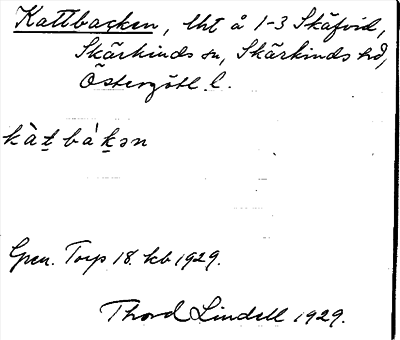 Kattbacken, lht å 1-3 Skäfvid,
Skärkinds sn, Skärkinds hd,
Östergötl. l.
kàt̠bàk̠ən
Gen. Torp 18. kb 1929.
Thord Lindell 1929.